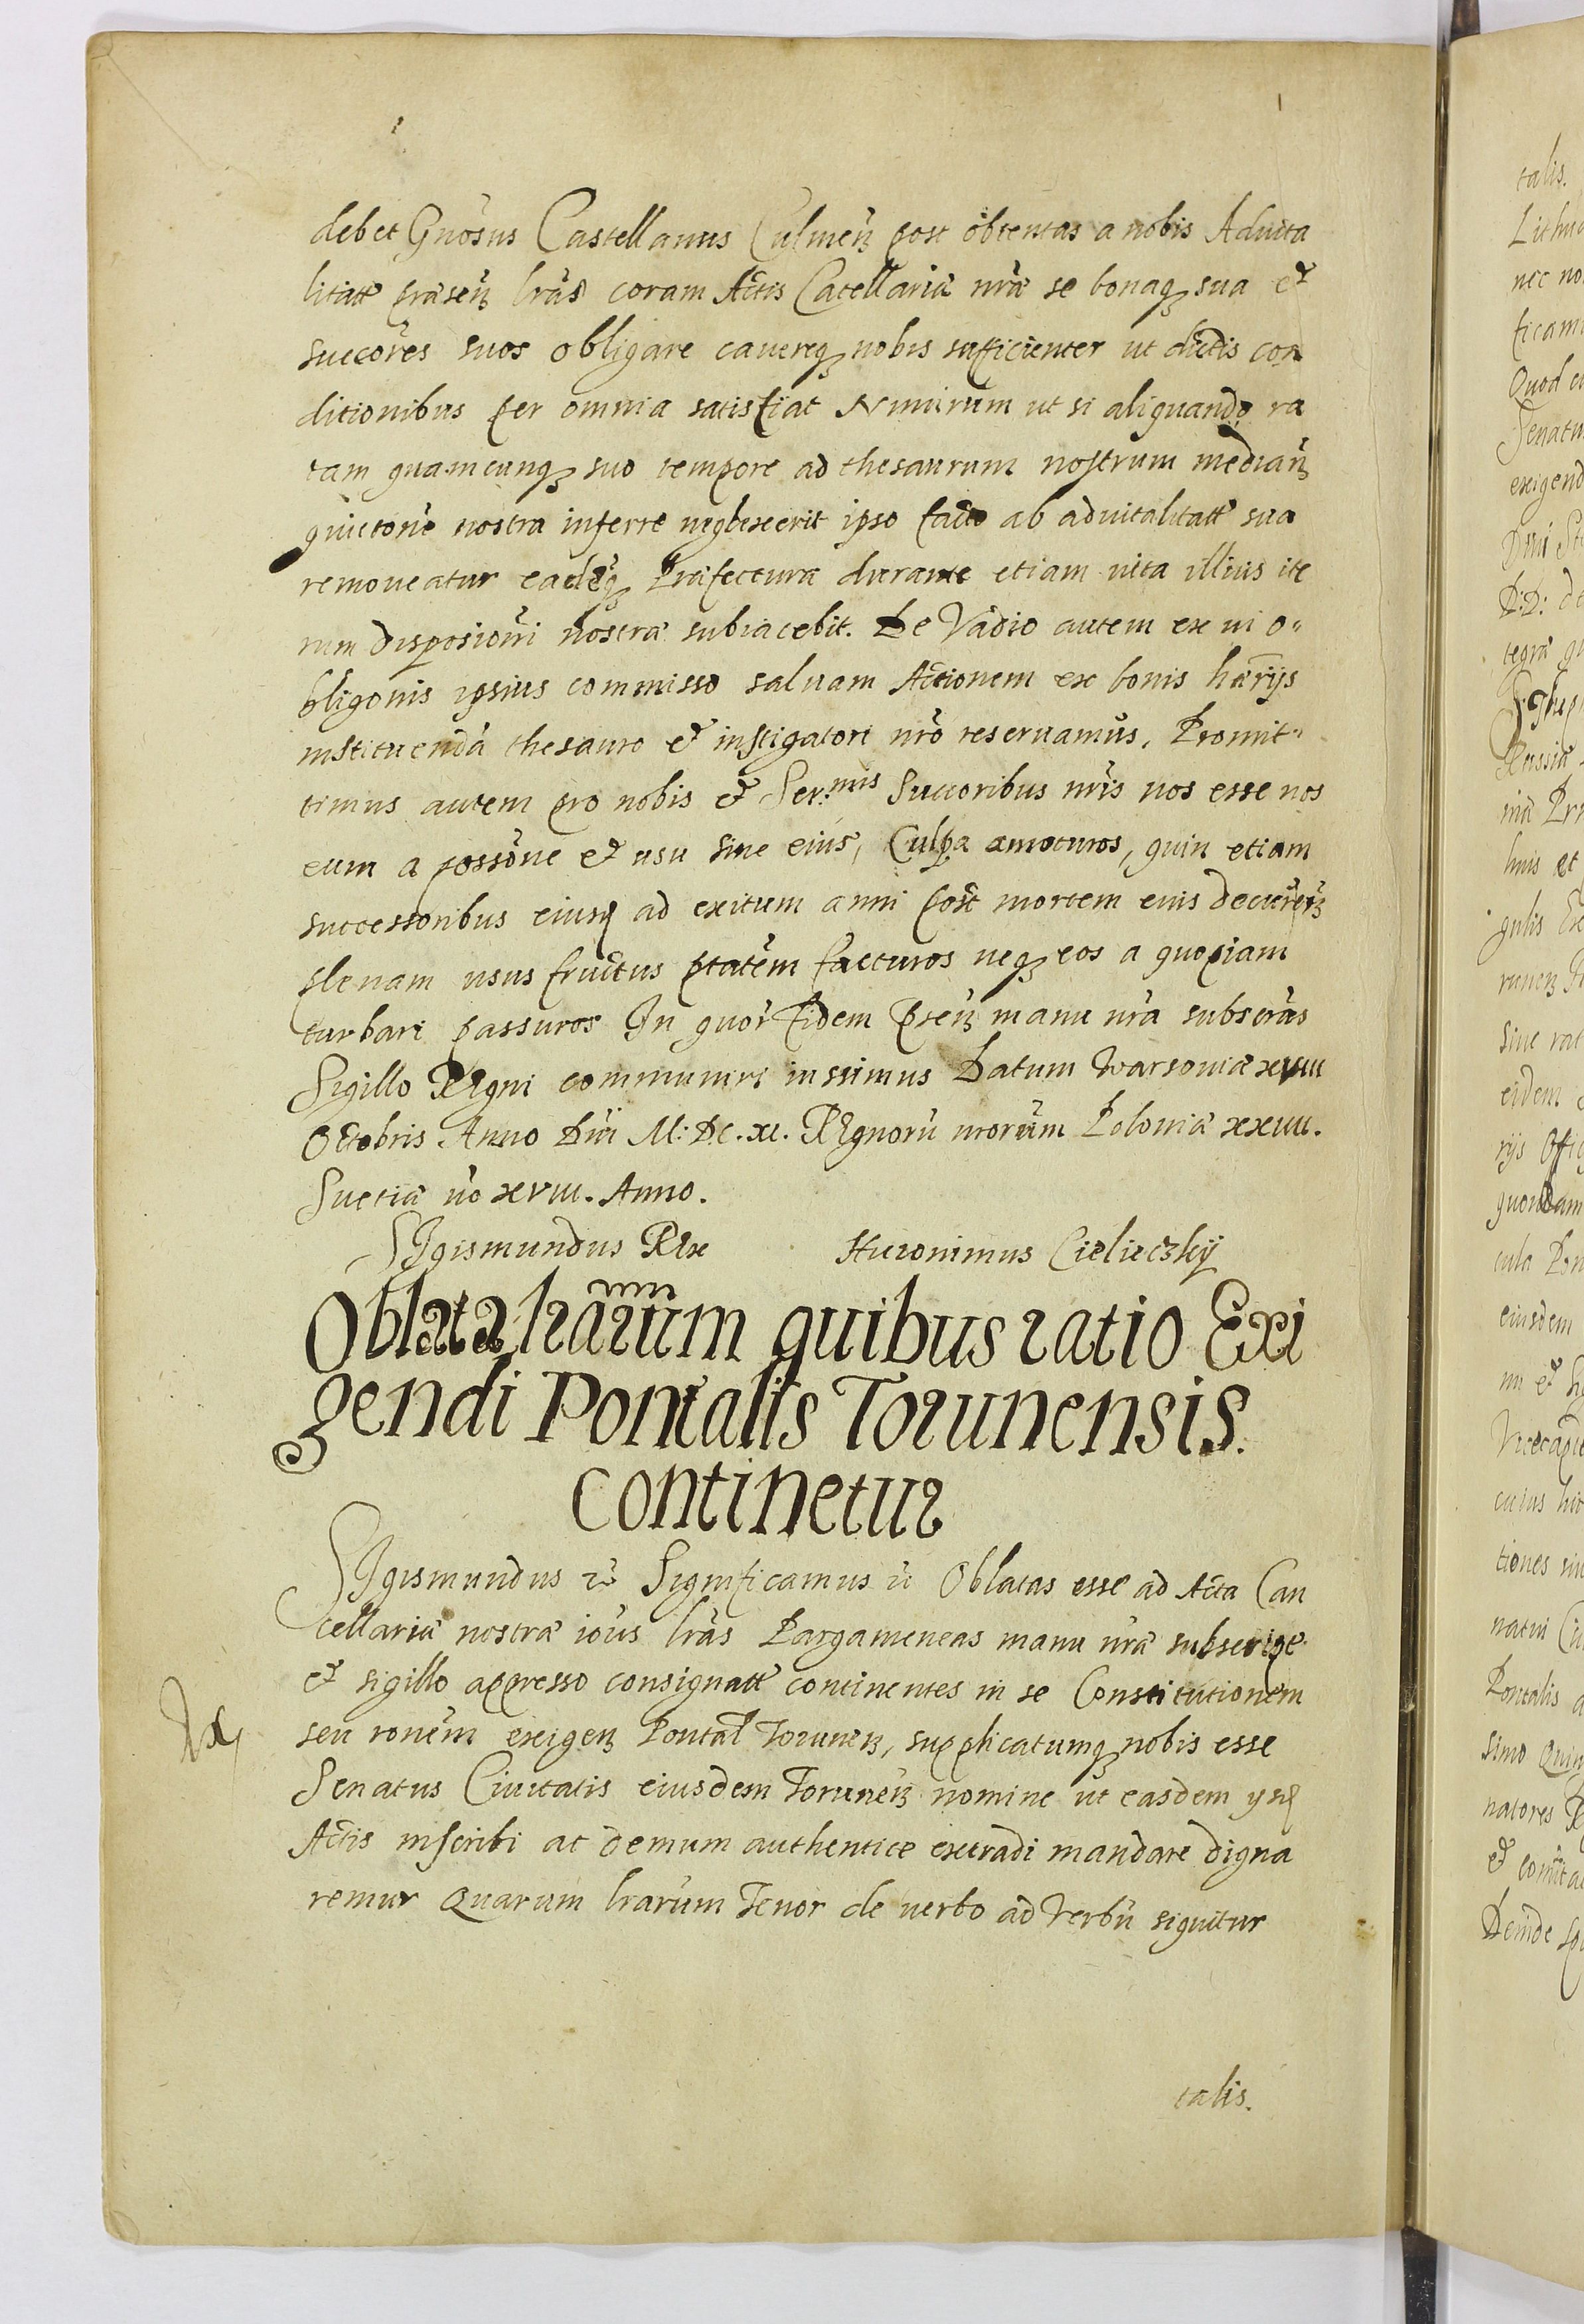 debet Gnosus Castellanus Culmeñ post obtentas a nobis Aduita
litatt præseñ lras coram Actis Cãcellariæ nræ se bonaq sua et
succores suos obligare cavereq nobis sufficienter ut dictis con
ditionibus per omnia satisfiat Nimirum ut si aliquando ra
tam quamcunq suo tempore ad thesaurum nostrum mediañ
quictone nostra inferre neglexerit ipso facto ab aduitalitatt sua
remoueatur eadeq Præfectura durante etiam uita illius ite
rum disposioni nostræ subiacebit. De Vadio autem ex ui o„
bligonis ipsius commisso saluam Actionem ex bonis hærijs
instituendã thesauro et instigatori nro reseruamus, Promit„
timus autem pro nobis et Ser:mis Succoribus nris nos esse nos
eum a possone et usu sine eius, Culpa amoturos, quin etiam
successoribus eiusq ad exitum anni post mortem eius decurreñ
plenam usus fructus ptatem facturos neq eos a quopiam
turbari passuros In quor fidem pñseñ manu nra subscras
Sigillo Regni communiri iussimus Datum Warsouiæ xviii
Octobris Anno Dni M: DC. xi. Regnorũ nrorum Poloniæ xxiiii.
Suetiæ uo xviii. Anno.
Sigismundus Rex Hieronimus Cielieczkÿ
Oblata lrarum quibus ratio Exi
gendi Pontalis Torunensis.
continetur
Sigismundus etc Significamus etc Oblatas esse ad Acta Can
cellariæ nostræ ious lras Pargameneas manu nra subscripe
et sigillo appresso consignatt continentes in se Constitutionem
seu ronem exigeñ Pontal Toruneñ, supplicatumq nobis esse
Senatus Ciuitatis eiusdem Toruneñ nomine ut easdem ysq
Actis inscribi ac demum authentice extradi mandare digna
remur Quarum lrarum Tenor de uerbo ad Verbũ siquitur
talis.